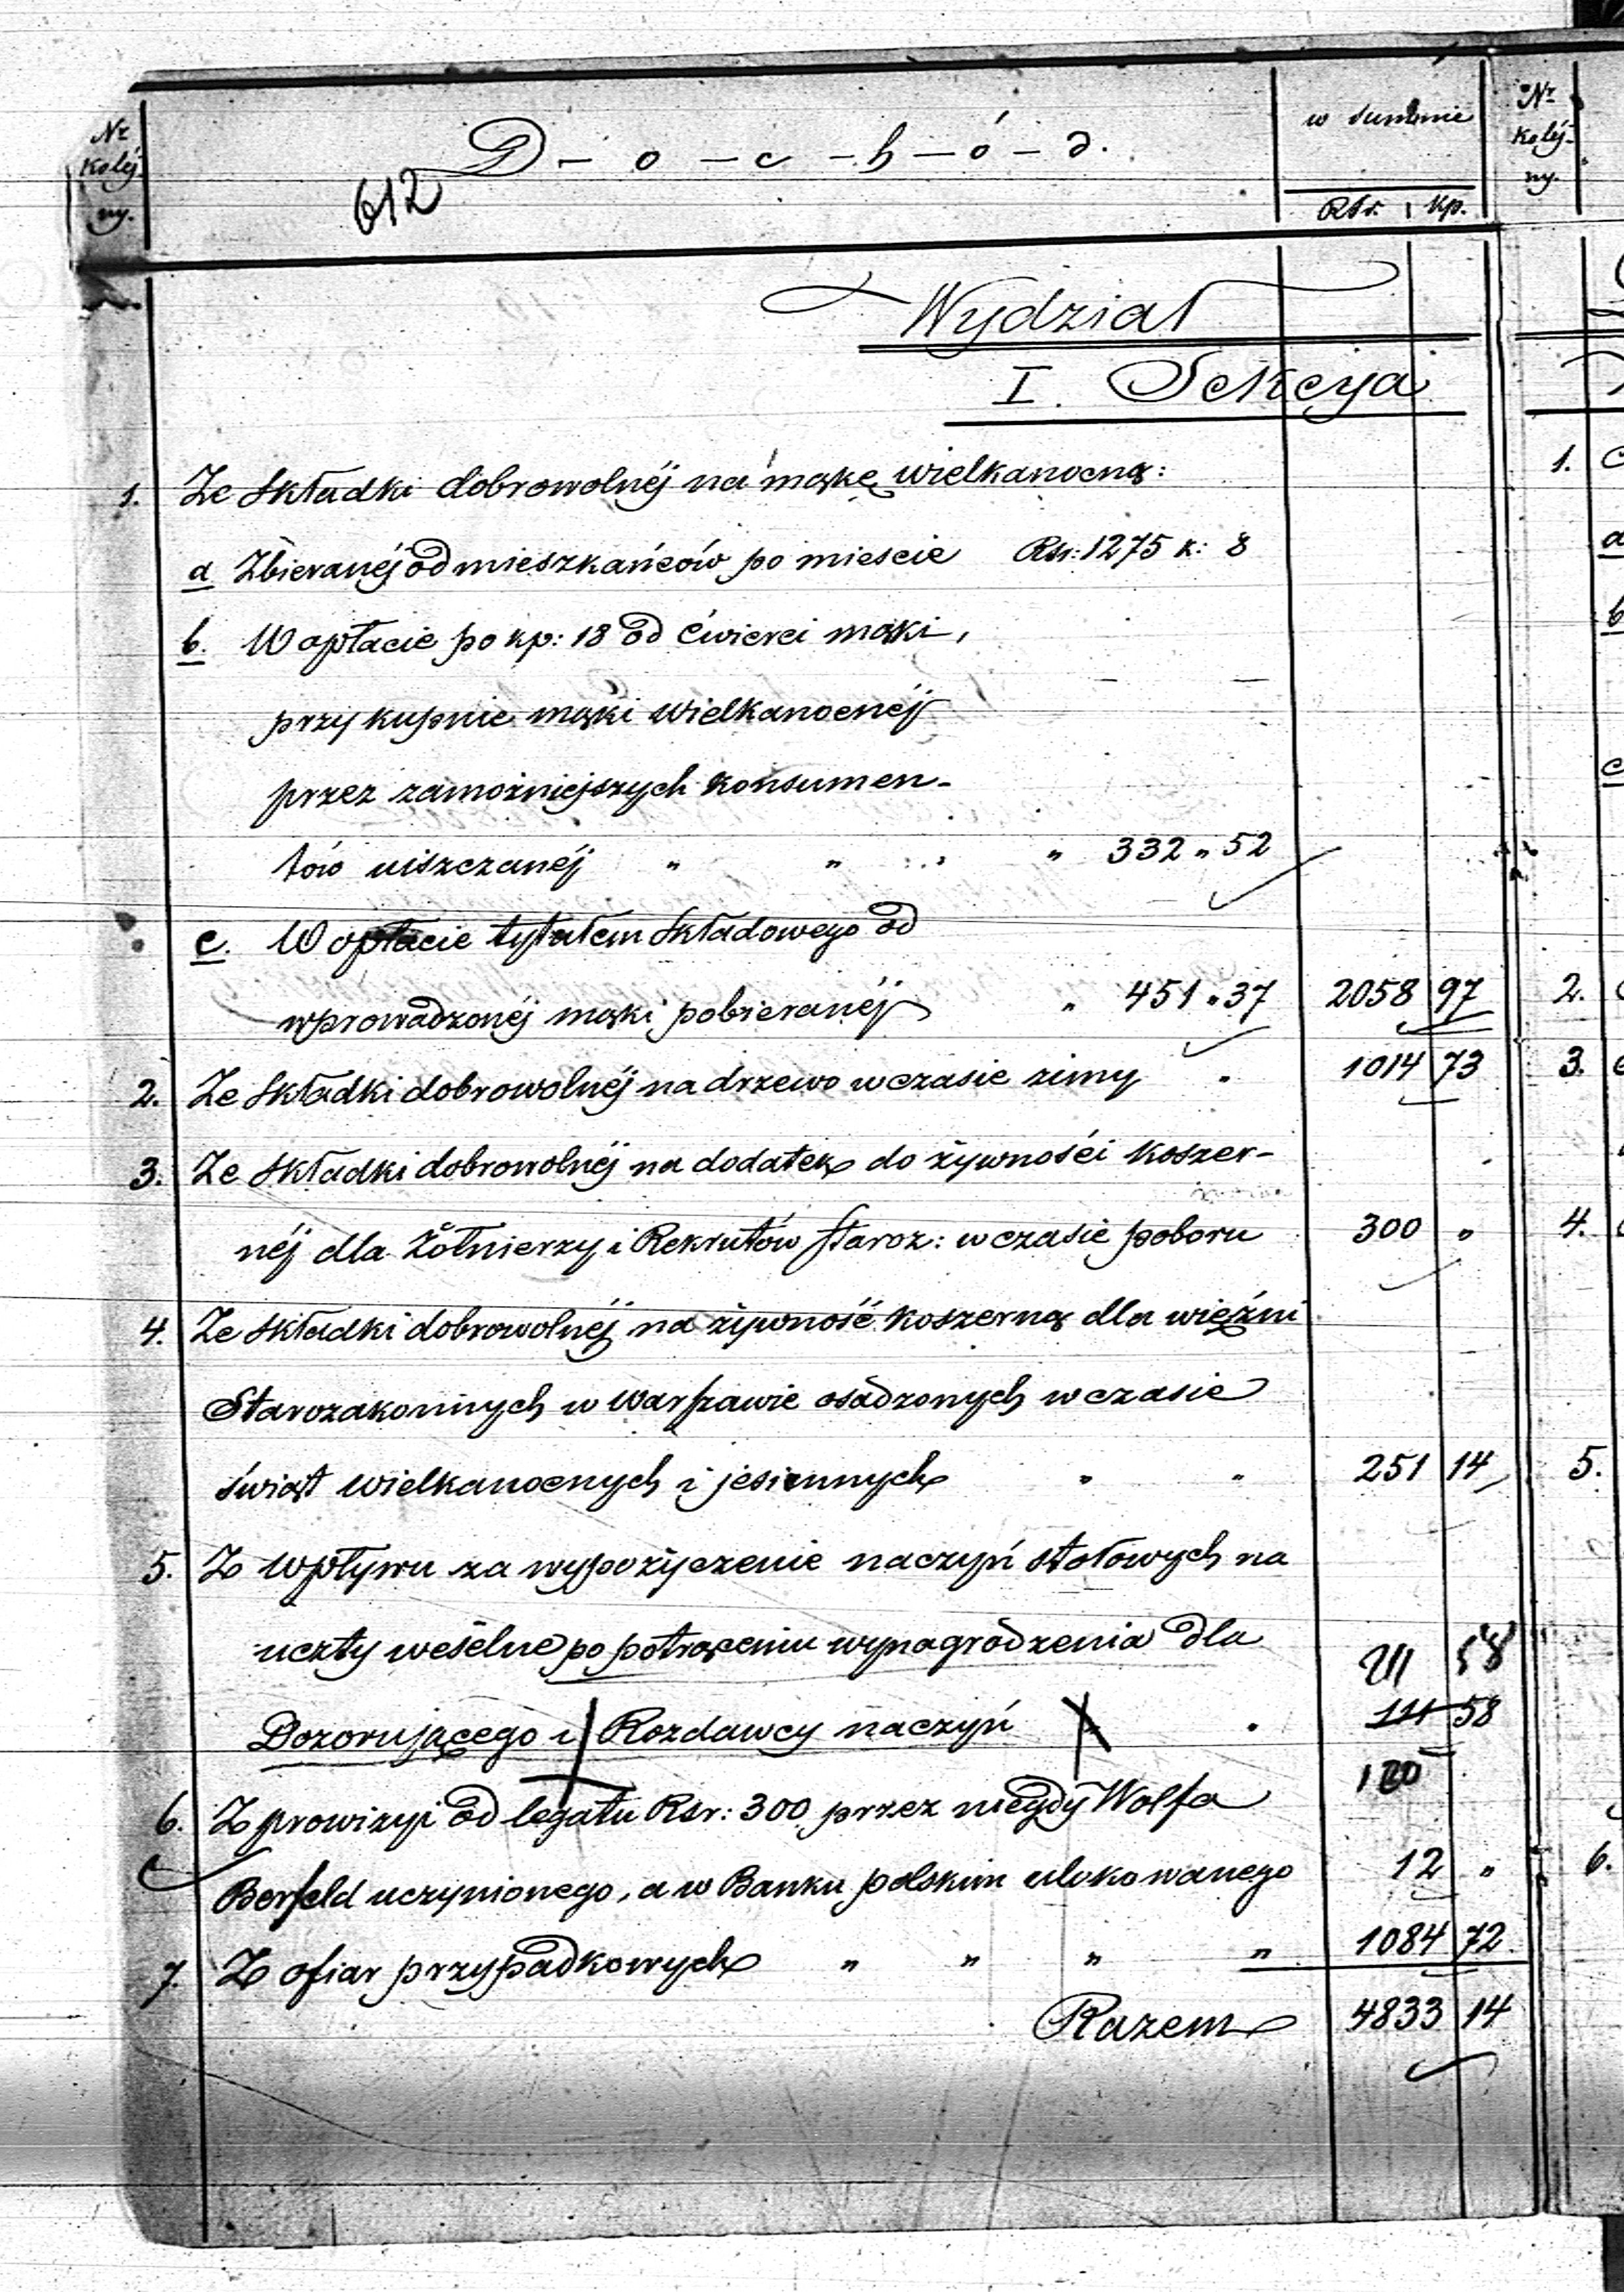 Nr kolej- ny.
D - o - c - h - ó - d.
w summie
Rsr. kp.
Nr kolej- ny.
612
Wydział
I. Sekcyja
1. Ze składki dobrowolnéj na mąkę wielkanocną:
a Zbieranéj od mieszkańców po mieście Rsr: 1275 k: 8
b. W opłacie po kp: 18 od ćwierci mąki,
przy kupnie mąki wielkanocnéj
przez zamożniejszych konsumen-
tów uiszczanéj " " " 332 " 52
c. W opłacie tytułem składowego od
wprowadzonéj mąki pobieranéj " 451 " 37 2058 97
2. Ze składki dobrowolnéj na drzewo w czasie zimy " 1014 73
3. Ze składki dobrowolnéj na dodatek do żywności koszer-
néj dla żołnierzy i Rekrutów staroz: w czasie poboru 300 "
4. Ze składki dobrowolnéj na żywność koszerną dla więźni
Starozakonnych w Warszawie osadzonych w czasie
świąt wielkanocnych i jesiennych " " 251 14
5. Z wpływu za wypożyczenie naczyń stołowych na
uczty weselne po potrąceniu wynagrodzenia dla 211 58
Dozorującego i Rozdawcy naczyń " 111 58
100
6. Z prowizyi od legatu Rsr: 300 przez niegdy Wolfa
Berfeld uczynionego, a w Banku polskim ulokowanego 12 "
7. Z ofiar przypadkowych " " " " 1084 72
Razem 4833 14
1.
a
b
c
2.
3.
4.
5.
6.